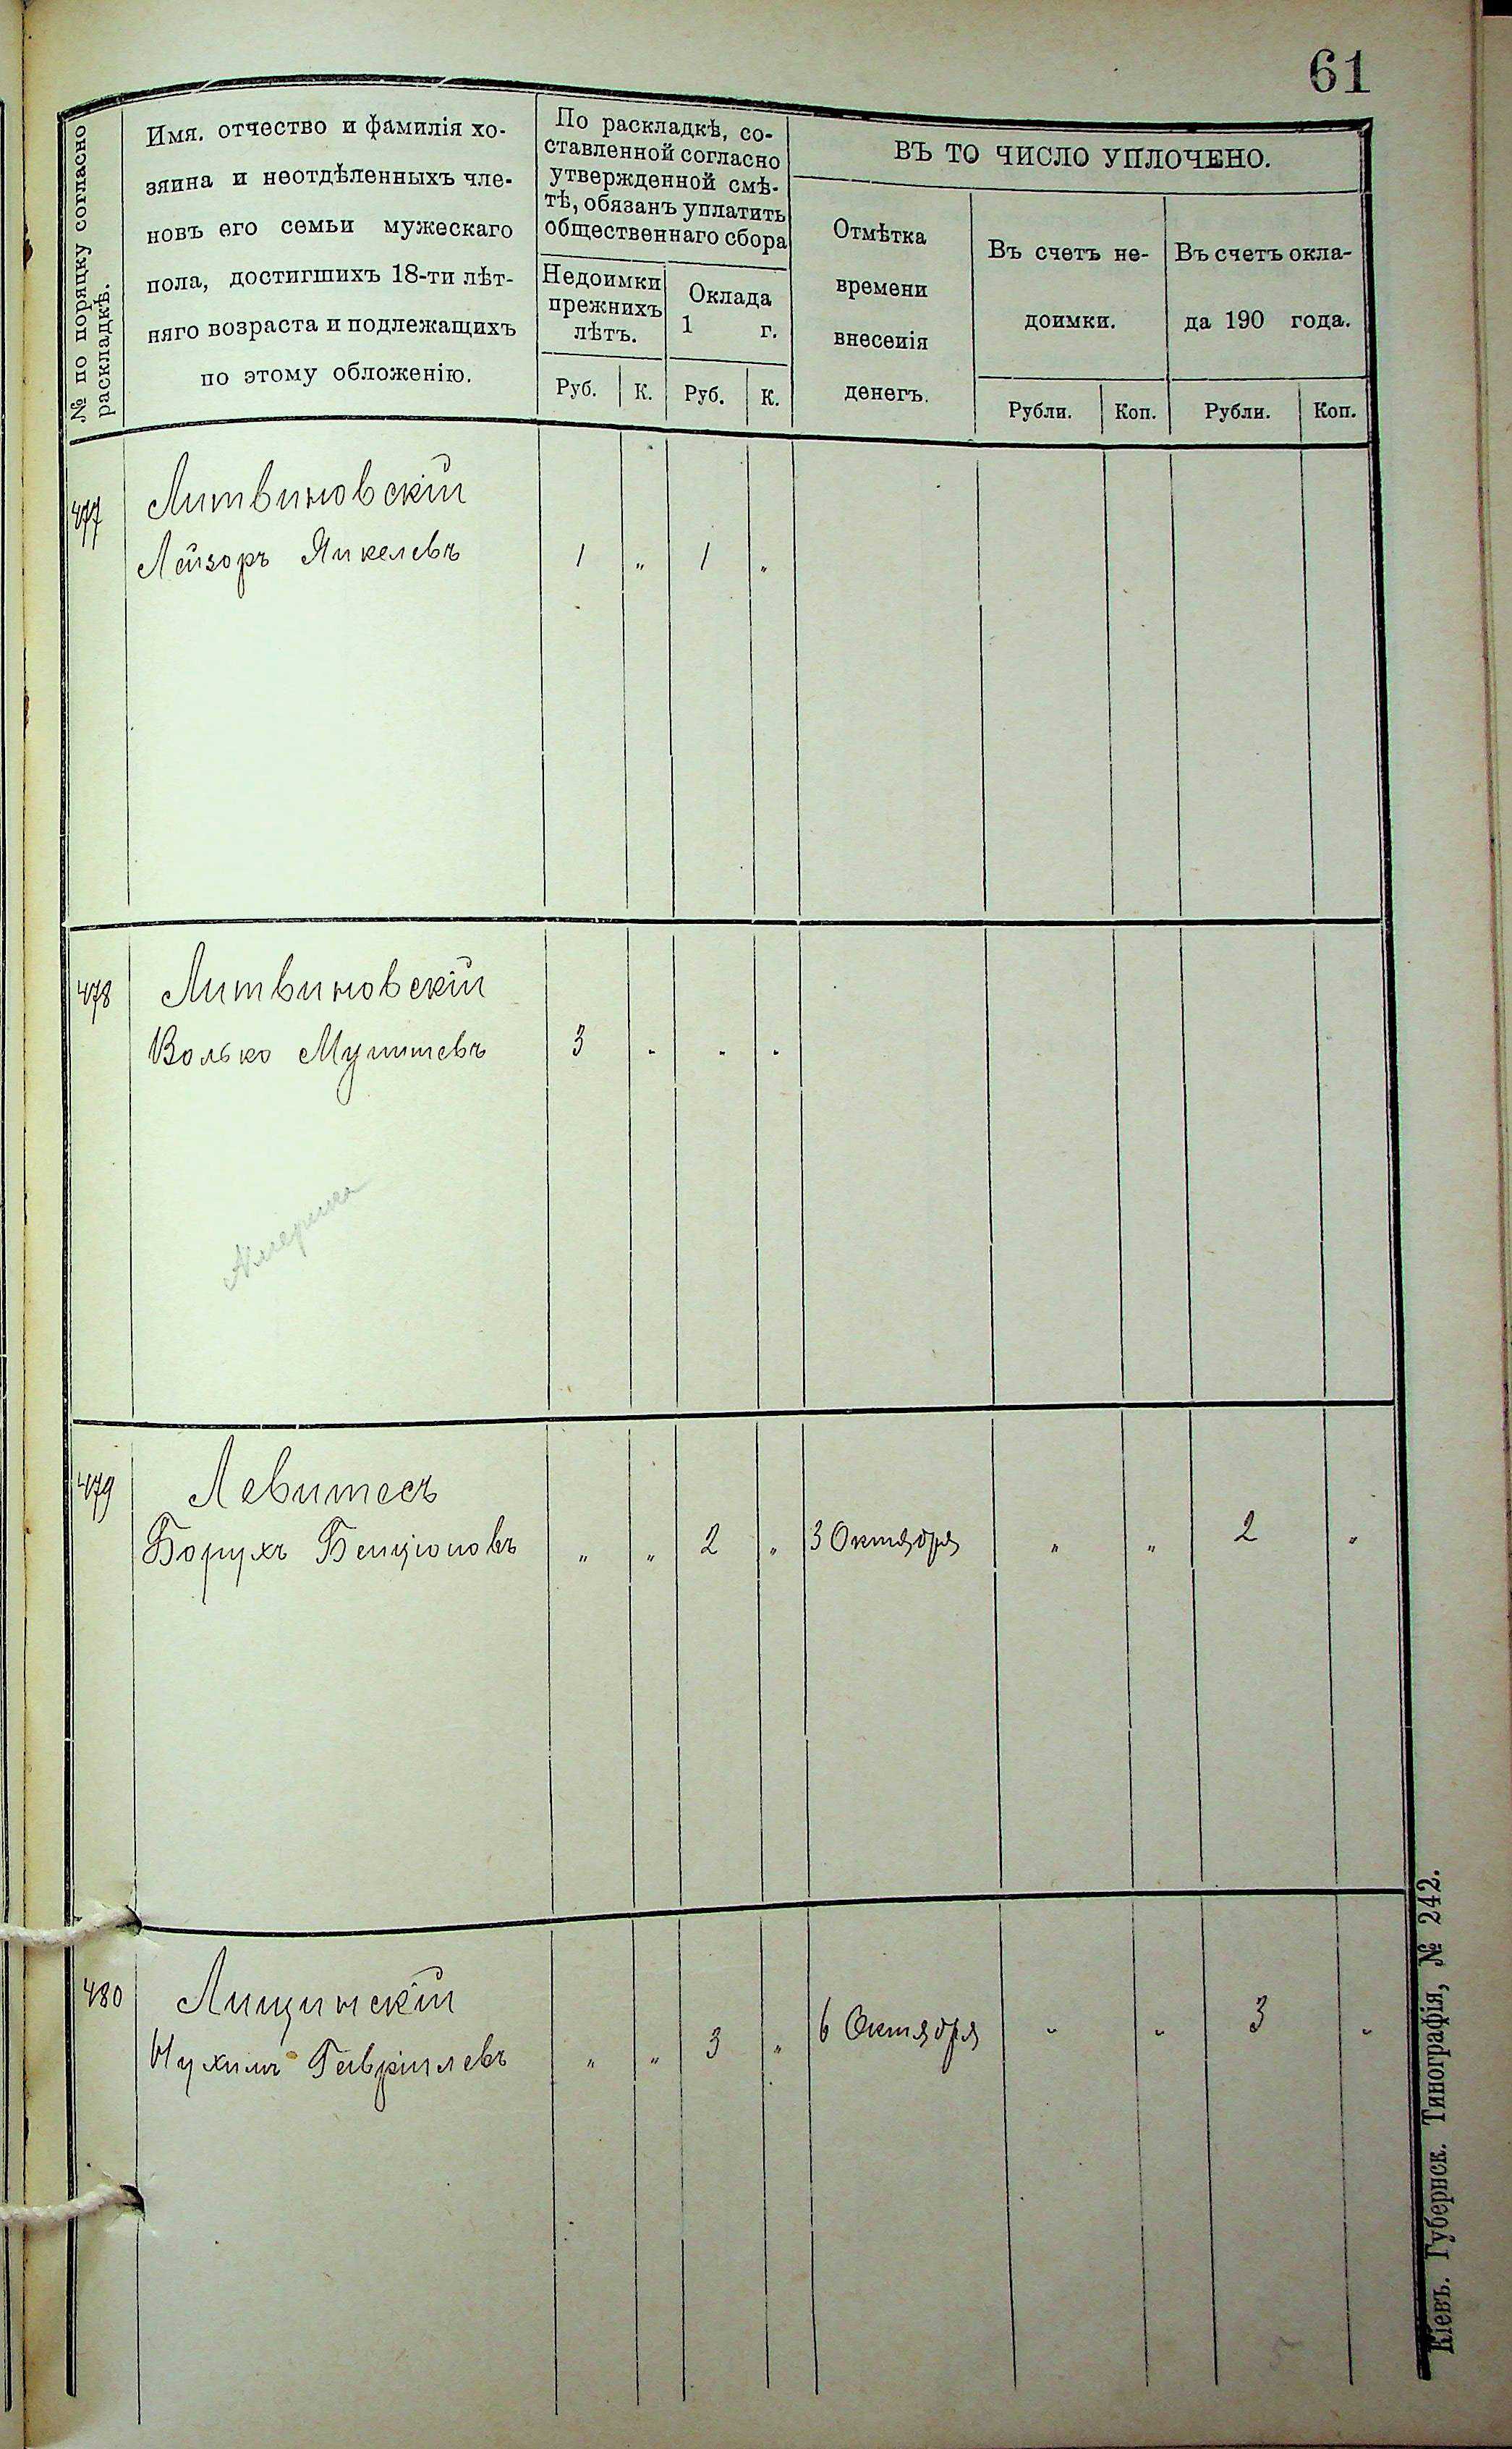 61
№ по порядку согласно
раскладкѣ.
Имя. отчество и фамилія хо-
зяина и неотдѣленныхъ чле-
новъ его семьи мужескаго
пола, достигшихъ 18-ти лѣт-
няго возраста и подлежащихъ
по этому обложенію.
По раскладкѣ, со-
ставленной согласно
утвержденной смѣ-
тѣ, обязанъ уплатить
общественнаго сбора
Недоимки
прежнихъ
лѣтъ.
Оклада
1 г.
Руб. К. Руб. К.
ВЪ ТО ЧИСЛО УПЛОЧЕНО.
Отмѣтка
времени
внесенія
денегъ.
Въ счетъ не-
доимки.
Въ счетъ окла-
да 190 года.
Рубли. Коп. Рубли. Коп.
477 Литвиновскій
Лейзоръ Янкелевъ 1 „ 1 „
478 Литвиновскій
Волько 3 . . .
Америка
479 Левитесъ
Борухъ Бенціоновъ „ „ 2 „ 3 Октября „ „ 2 „
480 Лищинскій
Нухимъ Гавриилевъ „ „ 3 „ 6 Октября „ „ 3 „
Кіевъ. Губернск. Типографія, № 242.